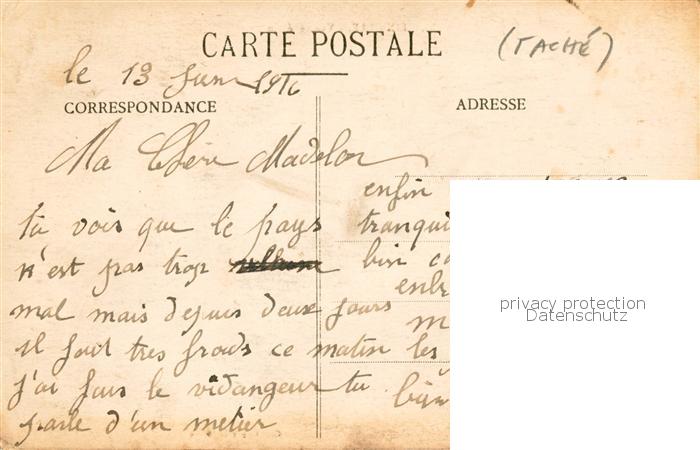 CARTE POSTALE
(TACHÉ)
le 13 Juin 1916
CORRESPONDANCE
ADRESSE
Ma Chère Madelon
tu vois que le pays
n'est pas trop
mal mais depuis deux jours
il fait tres froids ce matin
j'ai fais le vidangeur tu
parle d'un metier
enfin
tranqui
bien
les
privacy protection
Datenschutz